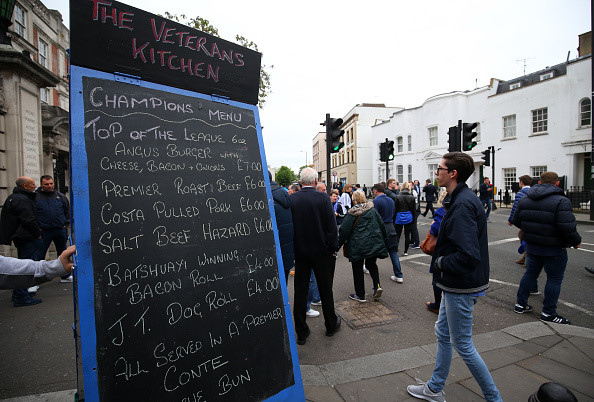 THE VETERANS
KITCHEN
CHAMPIONS MENU
TOP OF THE LEAGUE 6oz
ANGUS BURGER WITH
CHEESE, BACON + ONIONS £7.00
PREMIER ROAST BEEF £6.00
COSTA PULLED PORK £6.00
SALT BEEF HAZARD £6.00
BATSHUAYI WINNING
BACON ROLL £4.00
J.T. DOG ROLL £4.00
ALL SERVED IN A PREMIER
CONTE
BUN